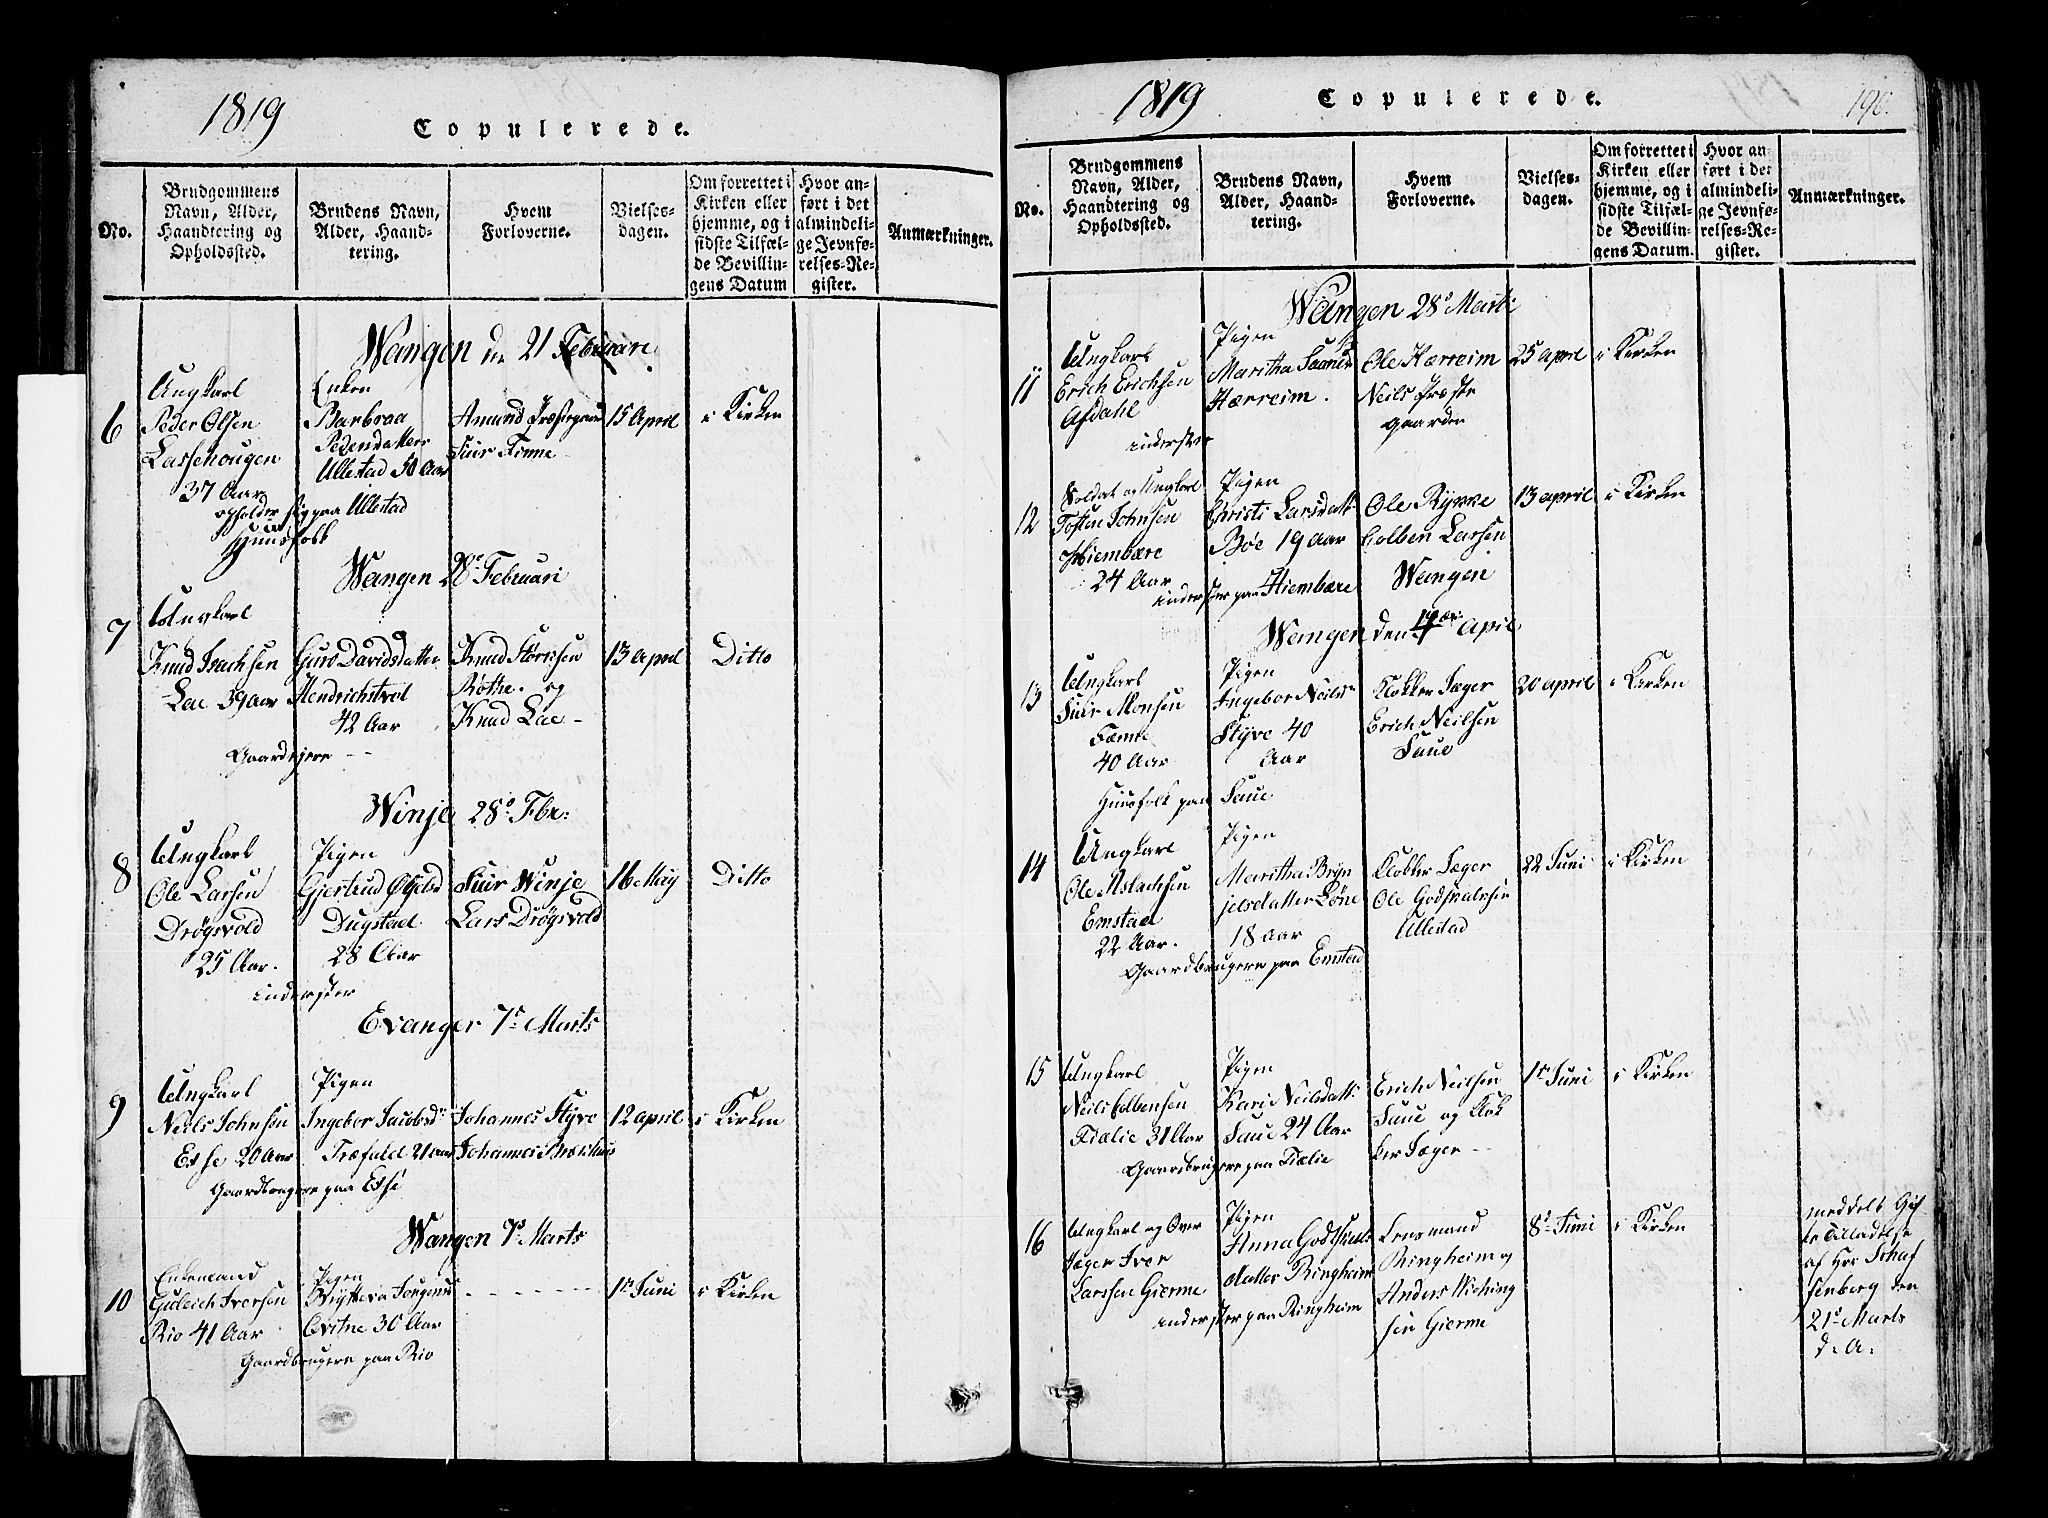 1819
Copulerede.
No.
Brudgommens
Navn, Alder,
Haandtering og
Opholdssted.
Brudens Navn,
Alder, Haand-
tering.
Hvem
Forloverne.
Vielses-
dagen.
Om forrettet i
Kirken eller
hjemme, og i
sidste Tilfæl-
de Bevillin-
gens Datum
Hvor an-
ført i det
almindeli-
ge Jevnfø-
relses-Re-
gister.
Anmærkninger.
Wangen d. 21 Februari
6
Ungkarl
Peder Olsen
Lassehougen
37 Aar
opholder sig paa Ullestad
Huusfolk
Enken
Barbraa
Pedersdatter
Ullestad 50 Aar
Amund Præstegaard
Siur Finne
15 April
i Kirken
Wangen 28e Februari
7
Ungkarl
Knud Isachsen
Lae 39 Aar
Guro Davidsdatter
Hendrichstvol
42 Aar
Gaardejere --
Knud Størchsen
Røthe. og
Knud Lae -
13 April
Ditto
Winje 28d Fbr:
8
Ungkarl
Ole Larsen
Drøgsvold
25 Aar.
Pigen
Gjertrud
Dugstad
28 Aar
inderster
Siur Winje
Lars Drøgsvold
16 May
Ditto
Evanger 7de Marts
9
Ungkarl
Neils Johnsen
Esse 20 Aar
Pigen
Ingebor Jacobsd:
Træfald 21 aar
Gaardbrugere paa Esse
Johannes Styve
Johannes
12 april
i Kirken
Wangen 7d Marts
10
Enkemand
Guleich Iversen
Rio 41 Aar
Pigen
Brytteva
Qvitne 30 Aar
Gaardbrugere paa Rio
- - - - - - -
1ste Juni
i Kirken
1819
Copulerede.
196.
No.
Brudgommens
Navn, Alder,
Haandtering og
Opholdssted.
Brudens Navn,
Alder, Haand-
tering.
Hvem
Forloverne.
Vielses-
dagen.
Om forrettet i
Kirken eller
hjemme, og i
sidste Tilfæl-
de Bevillin-
gens Datum.
Hvor an-
ført i det
almindeli-
ge Jevnfø-
relses-Re-
gister.
Anmærkninger.
Wangen 28d Marts
11
Ungkarl
Erich Erichsen
Afdahl
Pigen
Maritha
Hærreim.
inderster
Ole Hærreim
Neils Præste
Gaarden
25 April
i Kirken
12
Soldat og Ungkarl
Tosten Johnsen
Hiembære
24 Aar
Pigen
Christi Larsdatt:
Bøe 19 Aar
inderster paa Hiembære
Ole Rykke
Colben Larsen
Wangen
13 april
i Kirken
Wangen den April
13
Ungkarl
Siur Monsen
Fænne
40 Aar
Pigen
Ingebor Neils
Styve 40
Aar
Huusfolk paa Saue
Klokker Sæger
Erich Neilsen
Saue
20 april
i Kirken
14
Ungkarl
Ole Aslachsen
Emstad
22 Aar.
Pigen
Maritha Bryn
jelsdatter Løne
18 Aar
Gaardbrugere paa Emstad
Klokker Sæger
Ole Godskalksen
Ullestad
22 Juni
i Kirken
15
Ungkarl
Neils Colbensen
Tiælie 31 Aar
Pigen
Kari Neilsdatt:
Saue 24 Aar
Gaardbrugere paa Tiælie
Erich Neilsen
Saue og Klok
ker Sæger --
1ste Juni
i Kirken
16
Ungkarl og Over
Jæger Iver
Larssen Gierme
Pigen
Anna Godskalks
datter Ringheim
inderster paa Ringheim
Lensmand
Ringheim og
Anders Wiching
sen Gierme
8d Juni
i Kirken
meddelt Gif
te Tilladelse
af Hrr Schaf
fenberg den
21d Marts
d: A: